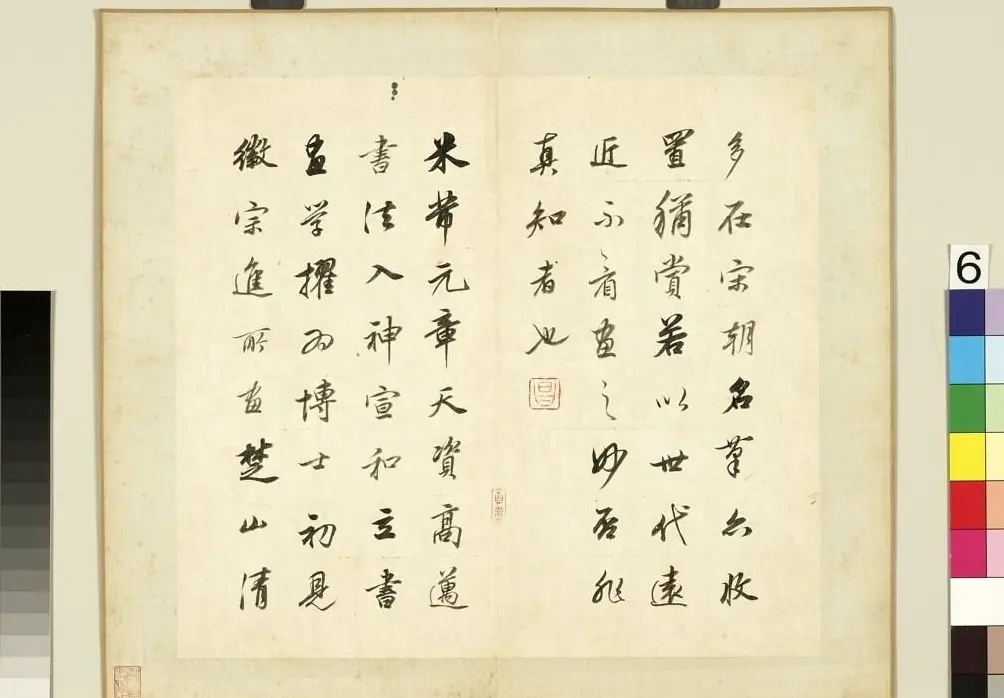 多在宋朝名筆亦收
置猶賞若以世代遠
近不看畫之妙否非
真知者也
米芾元章天資高邁
書法入神宣和立書
畫学擢為博士初見
徽宗進所畫楚山清
6